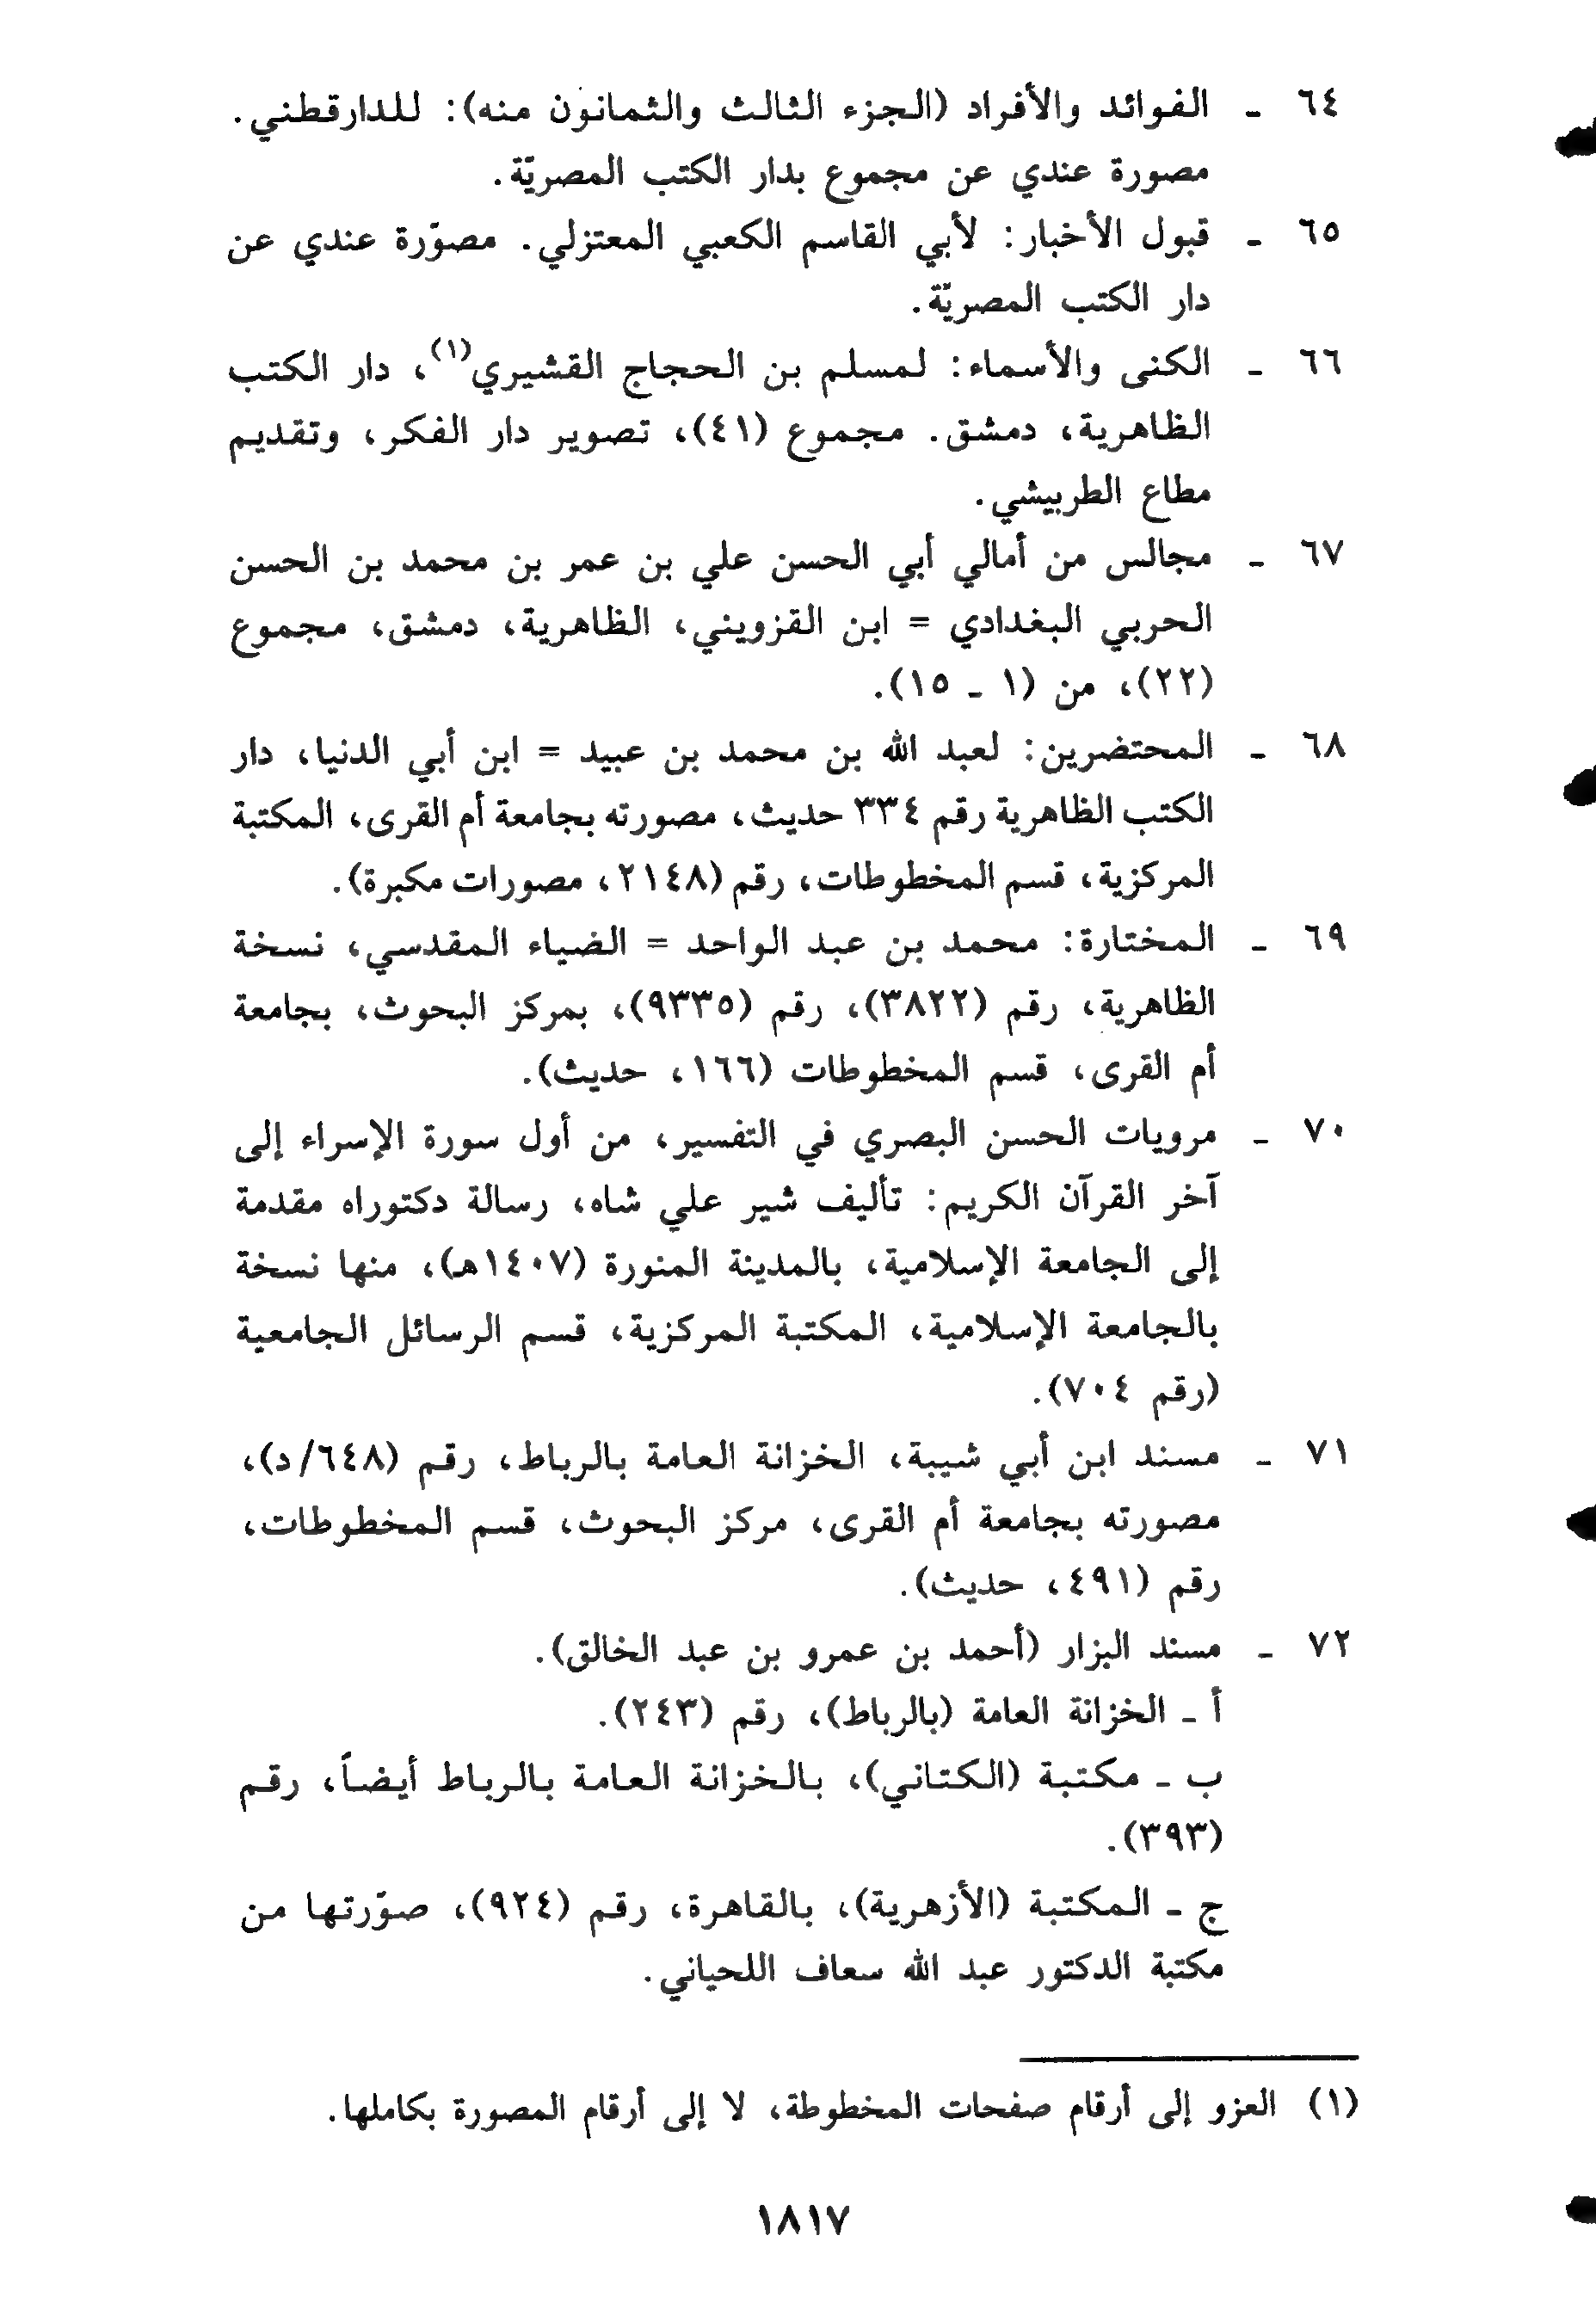 ٦٤ ـ الفوائد والأفراد (الجزء الثالث والثمانون منه): للدارقطني.
مصورة عندي عن مجموع بدار الكتب المصريّة.
٦٥ ـ قبول الأخبار: لأبي القاسم الكعبي المعتزلي. مصوّرة عندي عن
دار الكتب المصريّة.
٦٦ ـ الكنى والأسماء: لمسلم بن الحجاج القشيري(١)، دار الكتب
الظاهرية، دمشق. مجموع (٤١)، تصوير دار الفكر، وتقديم
مطاع الطربيشي.
٦٧ ـ مجالس من أمالي أبي الحسن علي بن عمر بن محمد بن الحسن
الحربي البغدادي = ابن القزويني، الظاهرية، دمشق، مجموع
(٢٢)، من (١ ـ ١٥).
٦٨ ـ المحتضرين: لعبد الله بن محمد بن عبيد = ابن أبي الدنيا، دار
الكتب الظاهرية رقم ٣٣٤ حديث، مصورته بجامعة أم القرى، المكتبة
المركزية، قسم المخطوطات، رقم (٢١٤٨، مصورات مكبرة).
٦٩ ـ المختارة: محمد بن عبد الواحد = الضياء المقدسي، نسخة
الظاهرية، رقم (٣٨٢٢)، رقم (٩٣٣٥)، بمركز البحوث، بجامعة
أم القرى، قسم المخطوطات (١٦٦، حديث).
٧٠ ـ مرويات الحسن البصري في التفسير، من أول سورة الإسراء إلى
آخر القرآن الكريم: تأليف شير علي شاه، رسالة دكتوراه مقدمة
إلى الجامعة الإسلامية، بالمدينة المنورة (١٤٠٧هـ)، منها نسخة
بالجامعة الإسلامية، المكتبة المركزية، قسم الرسائل الجامعية
(رقم ٧٠٤).
٧١ ـ مسند ابن أبي شيبة، الخزانة العامة بالرباط، رقم (٦٤٨/د)،
مصورته بجامعة أم القرى، مركز البحوث، قسم المخطوطات،
رقم (٤٩١، حديث).
٧٢ ـ مسند البزار (أحمد بن عمرو بن عبد الخالق).
أ ـ الخزانة العامة (بالرباط)، رقم (٢٤٣).
ب ـ مكتبة (الكتاني)، بالخزانة العامة بالرباط أيضاً، رقم
(٣٩٣).
ج ـ المكتبة (الأزهرية)، بالقاهرة، رقم (٩٢٤)، صوّرتها من
مكتبة الدكتور عبد الله سعاف اللحياني.
(١) العزو إلى أرقام صفحات المخطوطة، لا إلى أرقام المصورة بكاملها.
١٨١٧